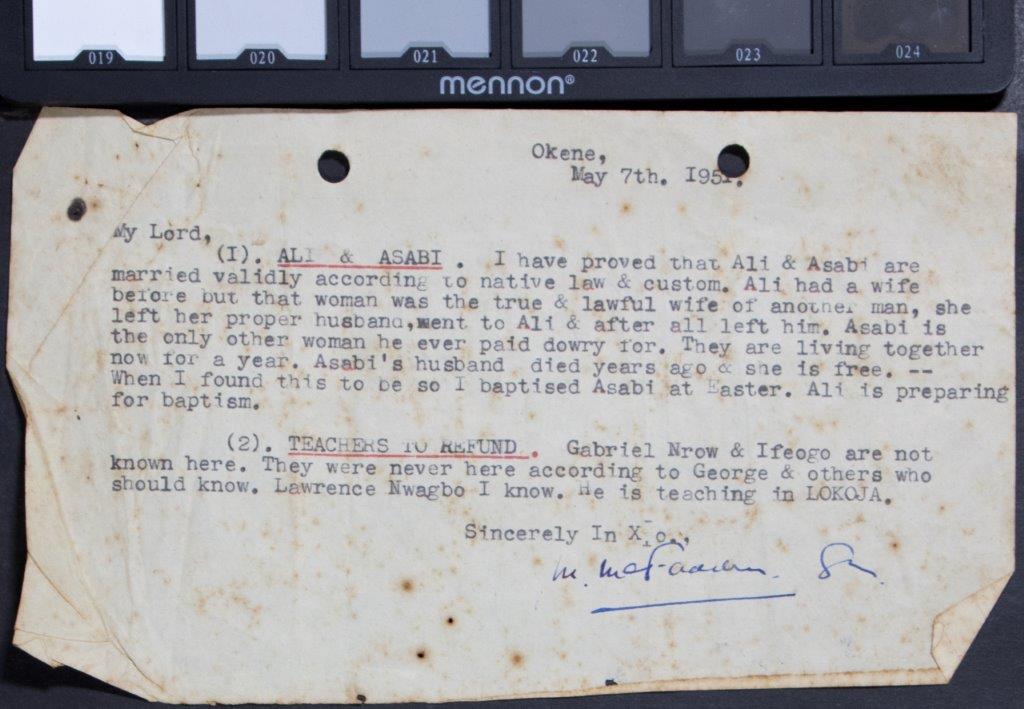 019 020 021 022 023 024
mennon®
Okene,
May 7th. I951.
My Lord,
(I). ALI & ASABI . I have proved that Ali & Asabi are
married validly according to native law & custom. Ali had a wife
before but that woman was the true & lawful wife of another man, she
left her proper husband,went to Ali & after all left him. Asabi is
the only other woman he ever paid dowry for. They are living together
now for a year. Asabi's husband died years ago & she is free. --
When I found this to be so I baptised Asabi at Easter. Ali is preparing
for baptism.
(2). TEACHERS TO REFUND . Gabriel Nrow & Ifeogo are not
known here. They were never here according to George & others who
should know. Lawrence Nwagbo I know. He is teaching in LOKOJA.
Sincerely In X_o.,
M. McFadden.